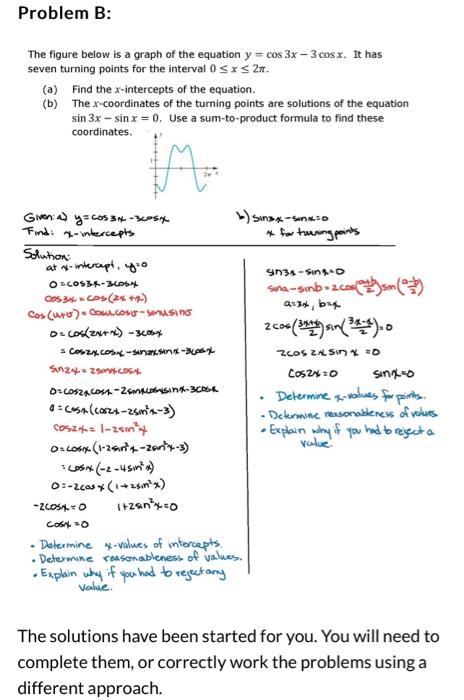 Problem B:
The figure below is a graph of the equation y = cos 3x − 3 cos x. It has
seven turning points for the interval 0 ≤ x ≤ 2π.
(a) Find the x-intercepts of the equation.
(b) The x-coordinates of the turning points are solutions of the equation
sin 3x − sin x = 0. Use a sum-to-product formula to find these
coordinates.
Given: a) y = cos 3x - 3cosx
Find: x-intercepts
Solution:
at x-intercept, y=0
0 = cos3x - 3cosx
cos3x = cos(2x+x)
cos(u+v) = cosucosv - sinusinv
0 = cos(2x+x) - 3cosx
= cos2xcosx - sin2xsinx - 3cosx
sin2x = 2sinxcosx
0 = cos2xcosx - 2sinxcosxsinx - 3cosx
0 = cosx(cos2x - 2sin²x - 3)
cos2x = 1 - 2sin²x
0 = cosx(1 - 2sin²x - 2sin²x - 3)
= cosx(-2 - 4sin²x)
0 = -2cosx(1 + 2sin²x)
-2cosx = 0 1+2sin²x = 0
cosx = 0
• Determine x-values of intercepts.
• Determine reasonableness of values.
• Explain why if you had to reject any
value.
b) sin3x - sinx = 0
x for turning points
sin3x - sinx = 0
sina - sinb = 2cos(a+b/2)sin(a-b/2)
a=3x, b=x
2cos(3x+x/2)sin(3x-x/2) = 0
2cos2x sinx = 0
cos2x = 0 sinx = 0
• Determine x-values for points.
• Determine reasonableness of values
• Explain why if you had to reject a
value.
The solutions have been started for you. You will need to
complete them, or correctly work the problems using a
different approach.